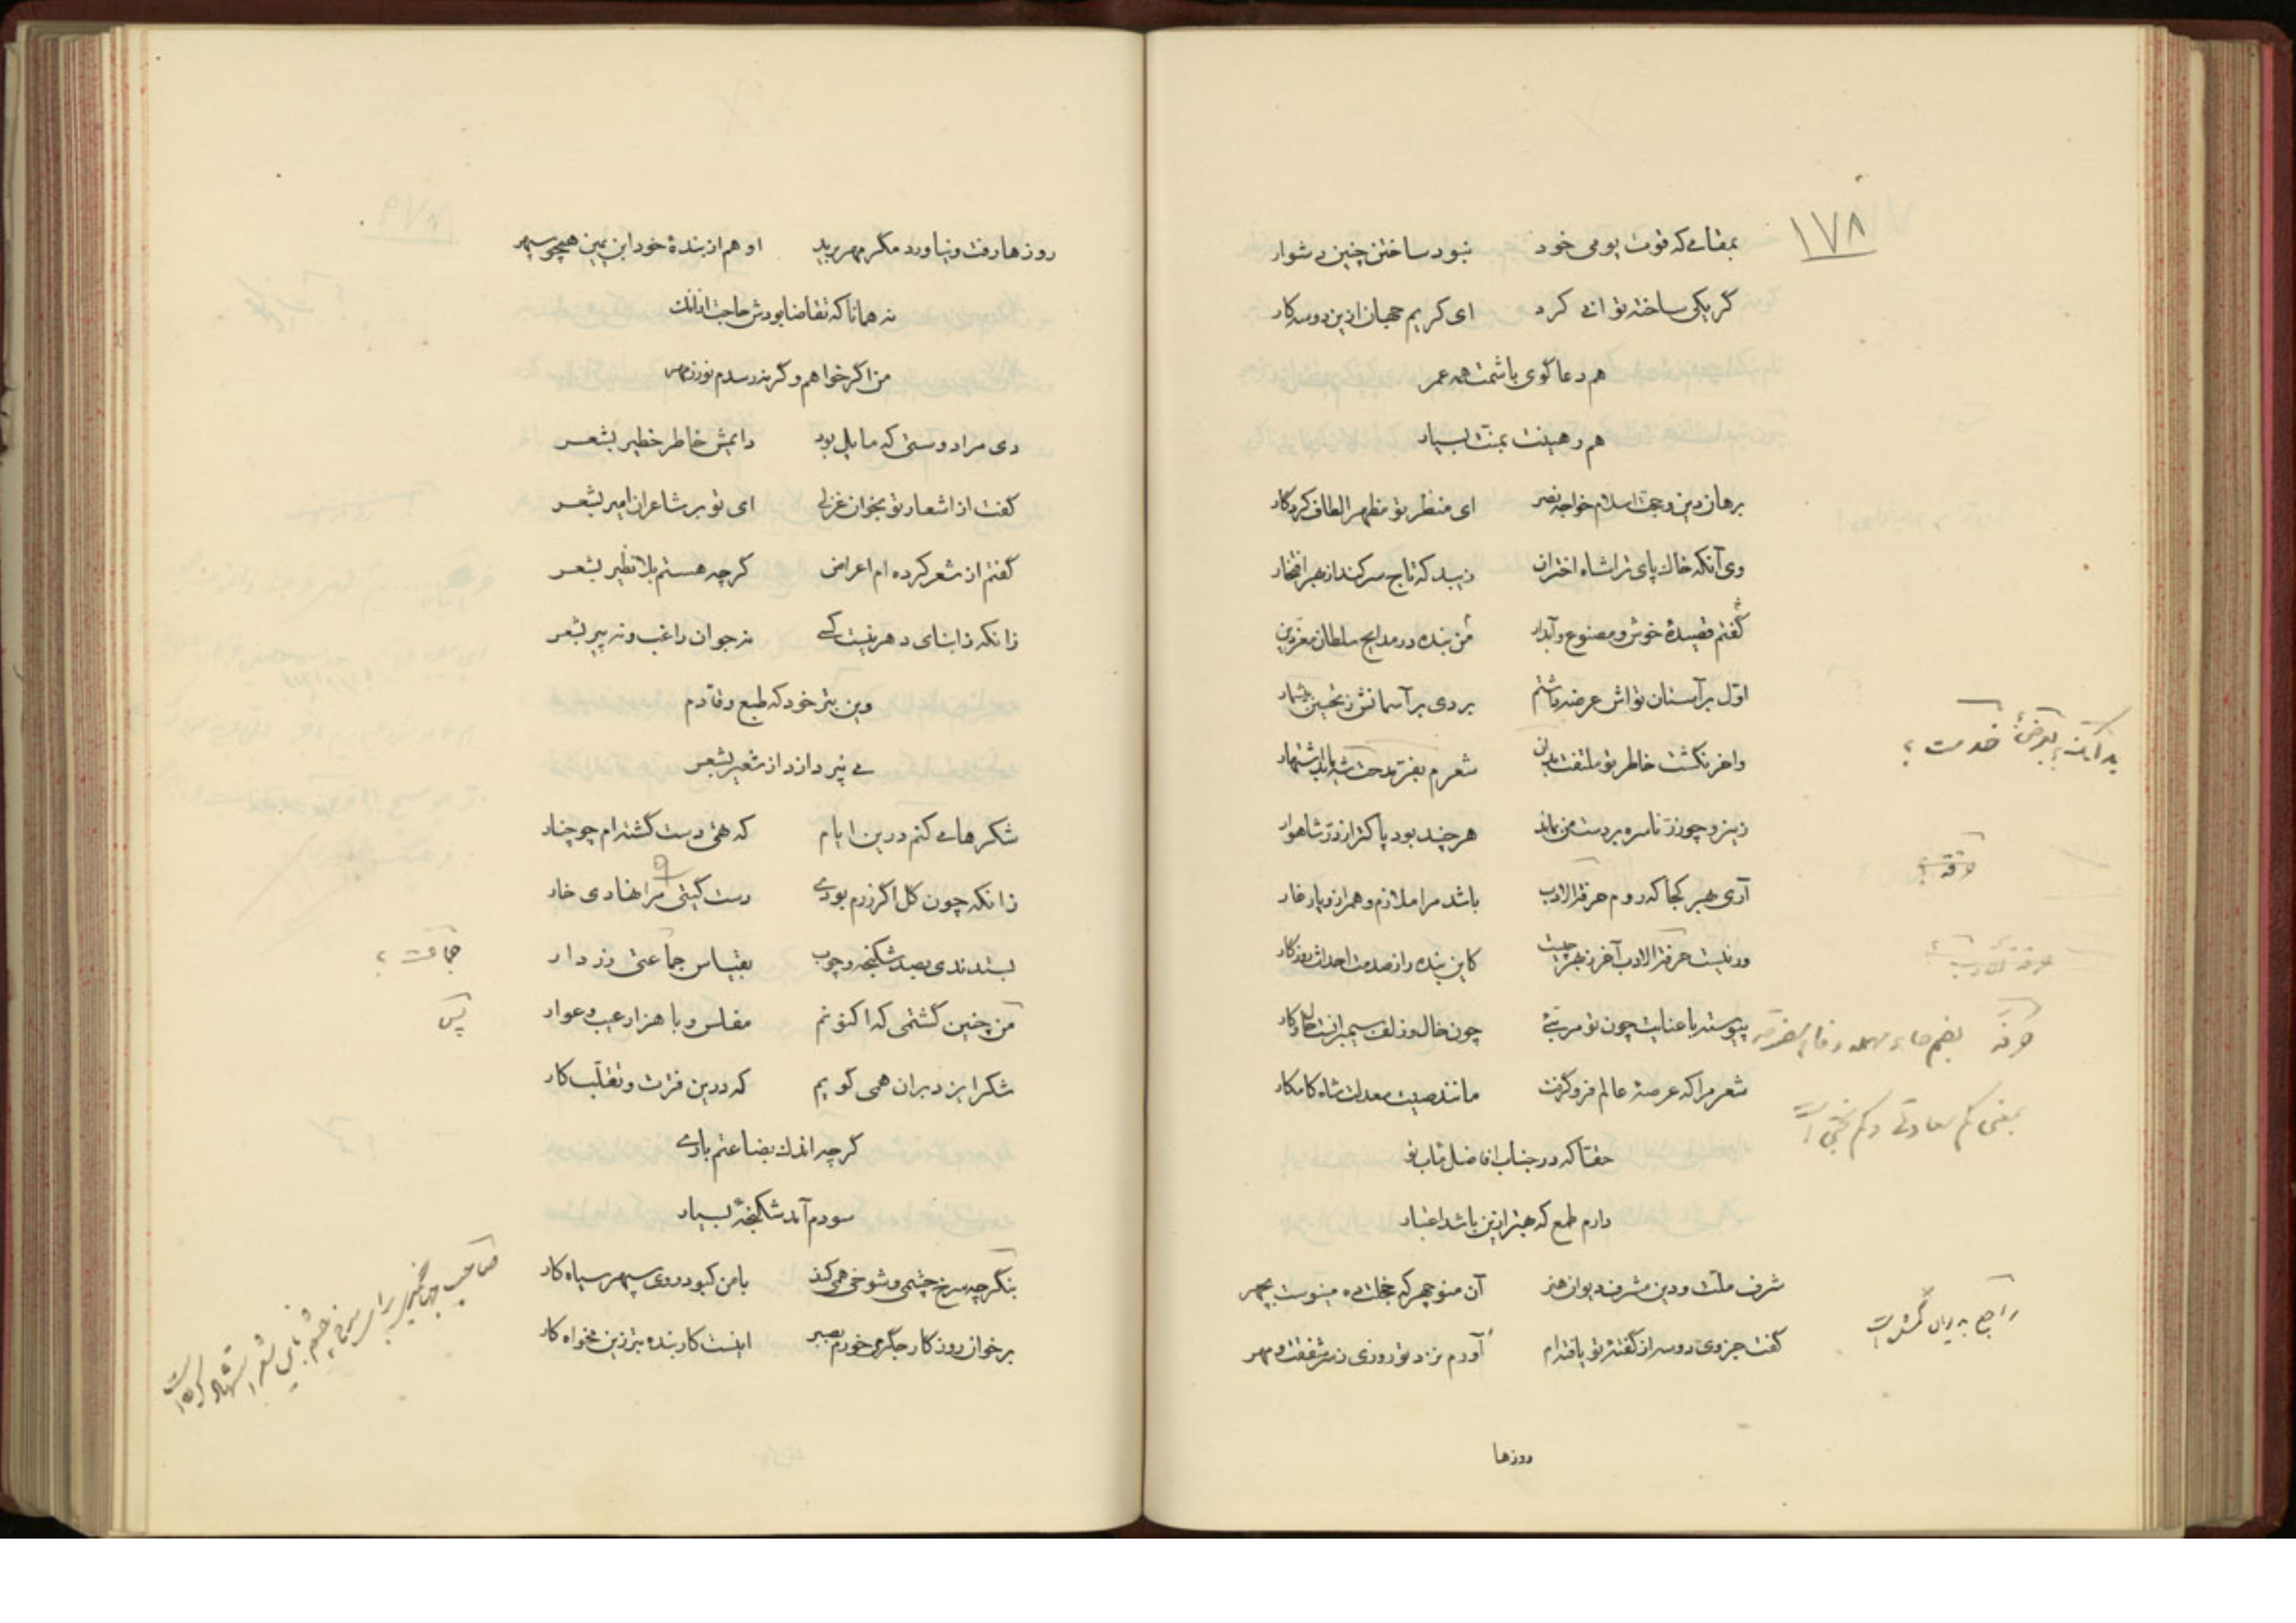 ۱۷۸
بمقامی که قوت بومی خود نبود ساختن چنین دشوار
گر یکی ساخته توانی کرد ای کریم جهان ازین دو سه کار
هم دعا گوی باشمت همه عمر
هم رهینت بمنت بسیار
برهان دین و حجت اسلام خواجه نصر ای منظر تو مظهر الطاف کردگار
وی آنکه خاک پای ترا شاه اختران زیبد که تاج سر کند از بهر افتخار
گفتم قصیدهٔ خوش و مصنوع و آبدار من بنده در مدایح سلطان معز دین
اول بر آستان تواش عرضه داشتم بردی بر آسمانش ز تحسین بیشمار
واخر نگشت خاطر تو ملتفت بدان شعرم بفر مدحت شه یابد اشتهار
زینرو چو زر ناسره بر دست من بماند هر چند بود پاکتر از در شاهوار
آری بهر کجا که روم حرفة الادب باشد مرا ملازم و همراز و یار غار
ور نیست حرفة الادب آخر ز بهر چیست کاین بنده را ز صدمت احداث روزگار
پیوسته با عنایت چون تو مربئی چون خال و زلف سیمبرانست حال و کار
شعر مرا که عرصهٔ عالم فرو گرفت مانند صیت معدلت شاه کامکار
حقا که در جناب افاضل مآب تو
دارم طمع که بهتر ازین باشد اعتبار
شرف ملت و دین مشرف دیوان هنر آن منوچهر که خجلت ده مینوست بچهر
گفت جزوی دو سه از گفتهٔ تو یافته‌ام آورم نزد تو روزی ز سر شفقت و مهر
روزها
بد آنکه؟ بعرضهٔ خدمت؟
حرفه؟
حرفه بضم حاء مهمله و فاء
بمعنی کم سعادتی و کم بختی است
راجع به دیوان گمشده است
روزها رفت و نیاورد مگر مهر برید او هم از بندهٔ خود ابن یمین همچو سپهر
نه همانا که تقاضا بودش حاجت از آنک
من اگر خواهم و گر نه رسدم نور ز مهر
دی مرا دوستی که مایل بود دایمش خاطر خطیر بشعر
گفت از اشعار تو بخوان غزلی ای تو بر شاعران امیر بشعر
گفتم از شعر کرده‌ام اعراض گرچه هستم بلا نظیر بشعر
زانکه ز ابنای دهر نیست کسی نه جوان راغب و نه پیر بشعر
وین بتر خود که طبع وقادم
می نپردازد از شعیر بشعر
شکرها می کنم درین ایام که تهی دست گشته‌ام چو چنار
زانکه چون گل اگر زرم بودی دست گیتی مرا نهادی خار
بستدندی بصد شکنجه و چوب بقیاس جماعتی زر دار
من چنین گشتمی که اکنونم مفلس و با هزار عیب و عوار
شکر ایزد بران همی گویم که درین فترت و تقلب کار
گرچه اندک بضاعتم باری
سودم آمد شکنجهٔ بسیار
بنگر چه سرخ چشمی و شوخی همی کند با من کبود روی سپهر سیاه کار
بر خوان روزگار جگر می خورم بصبر اینست کار بنده بتر زین مخواه کار
جماعت؟
پس
صاحب جهانگیری برای سرخ چشم باین شعر استشهاد کرده است